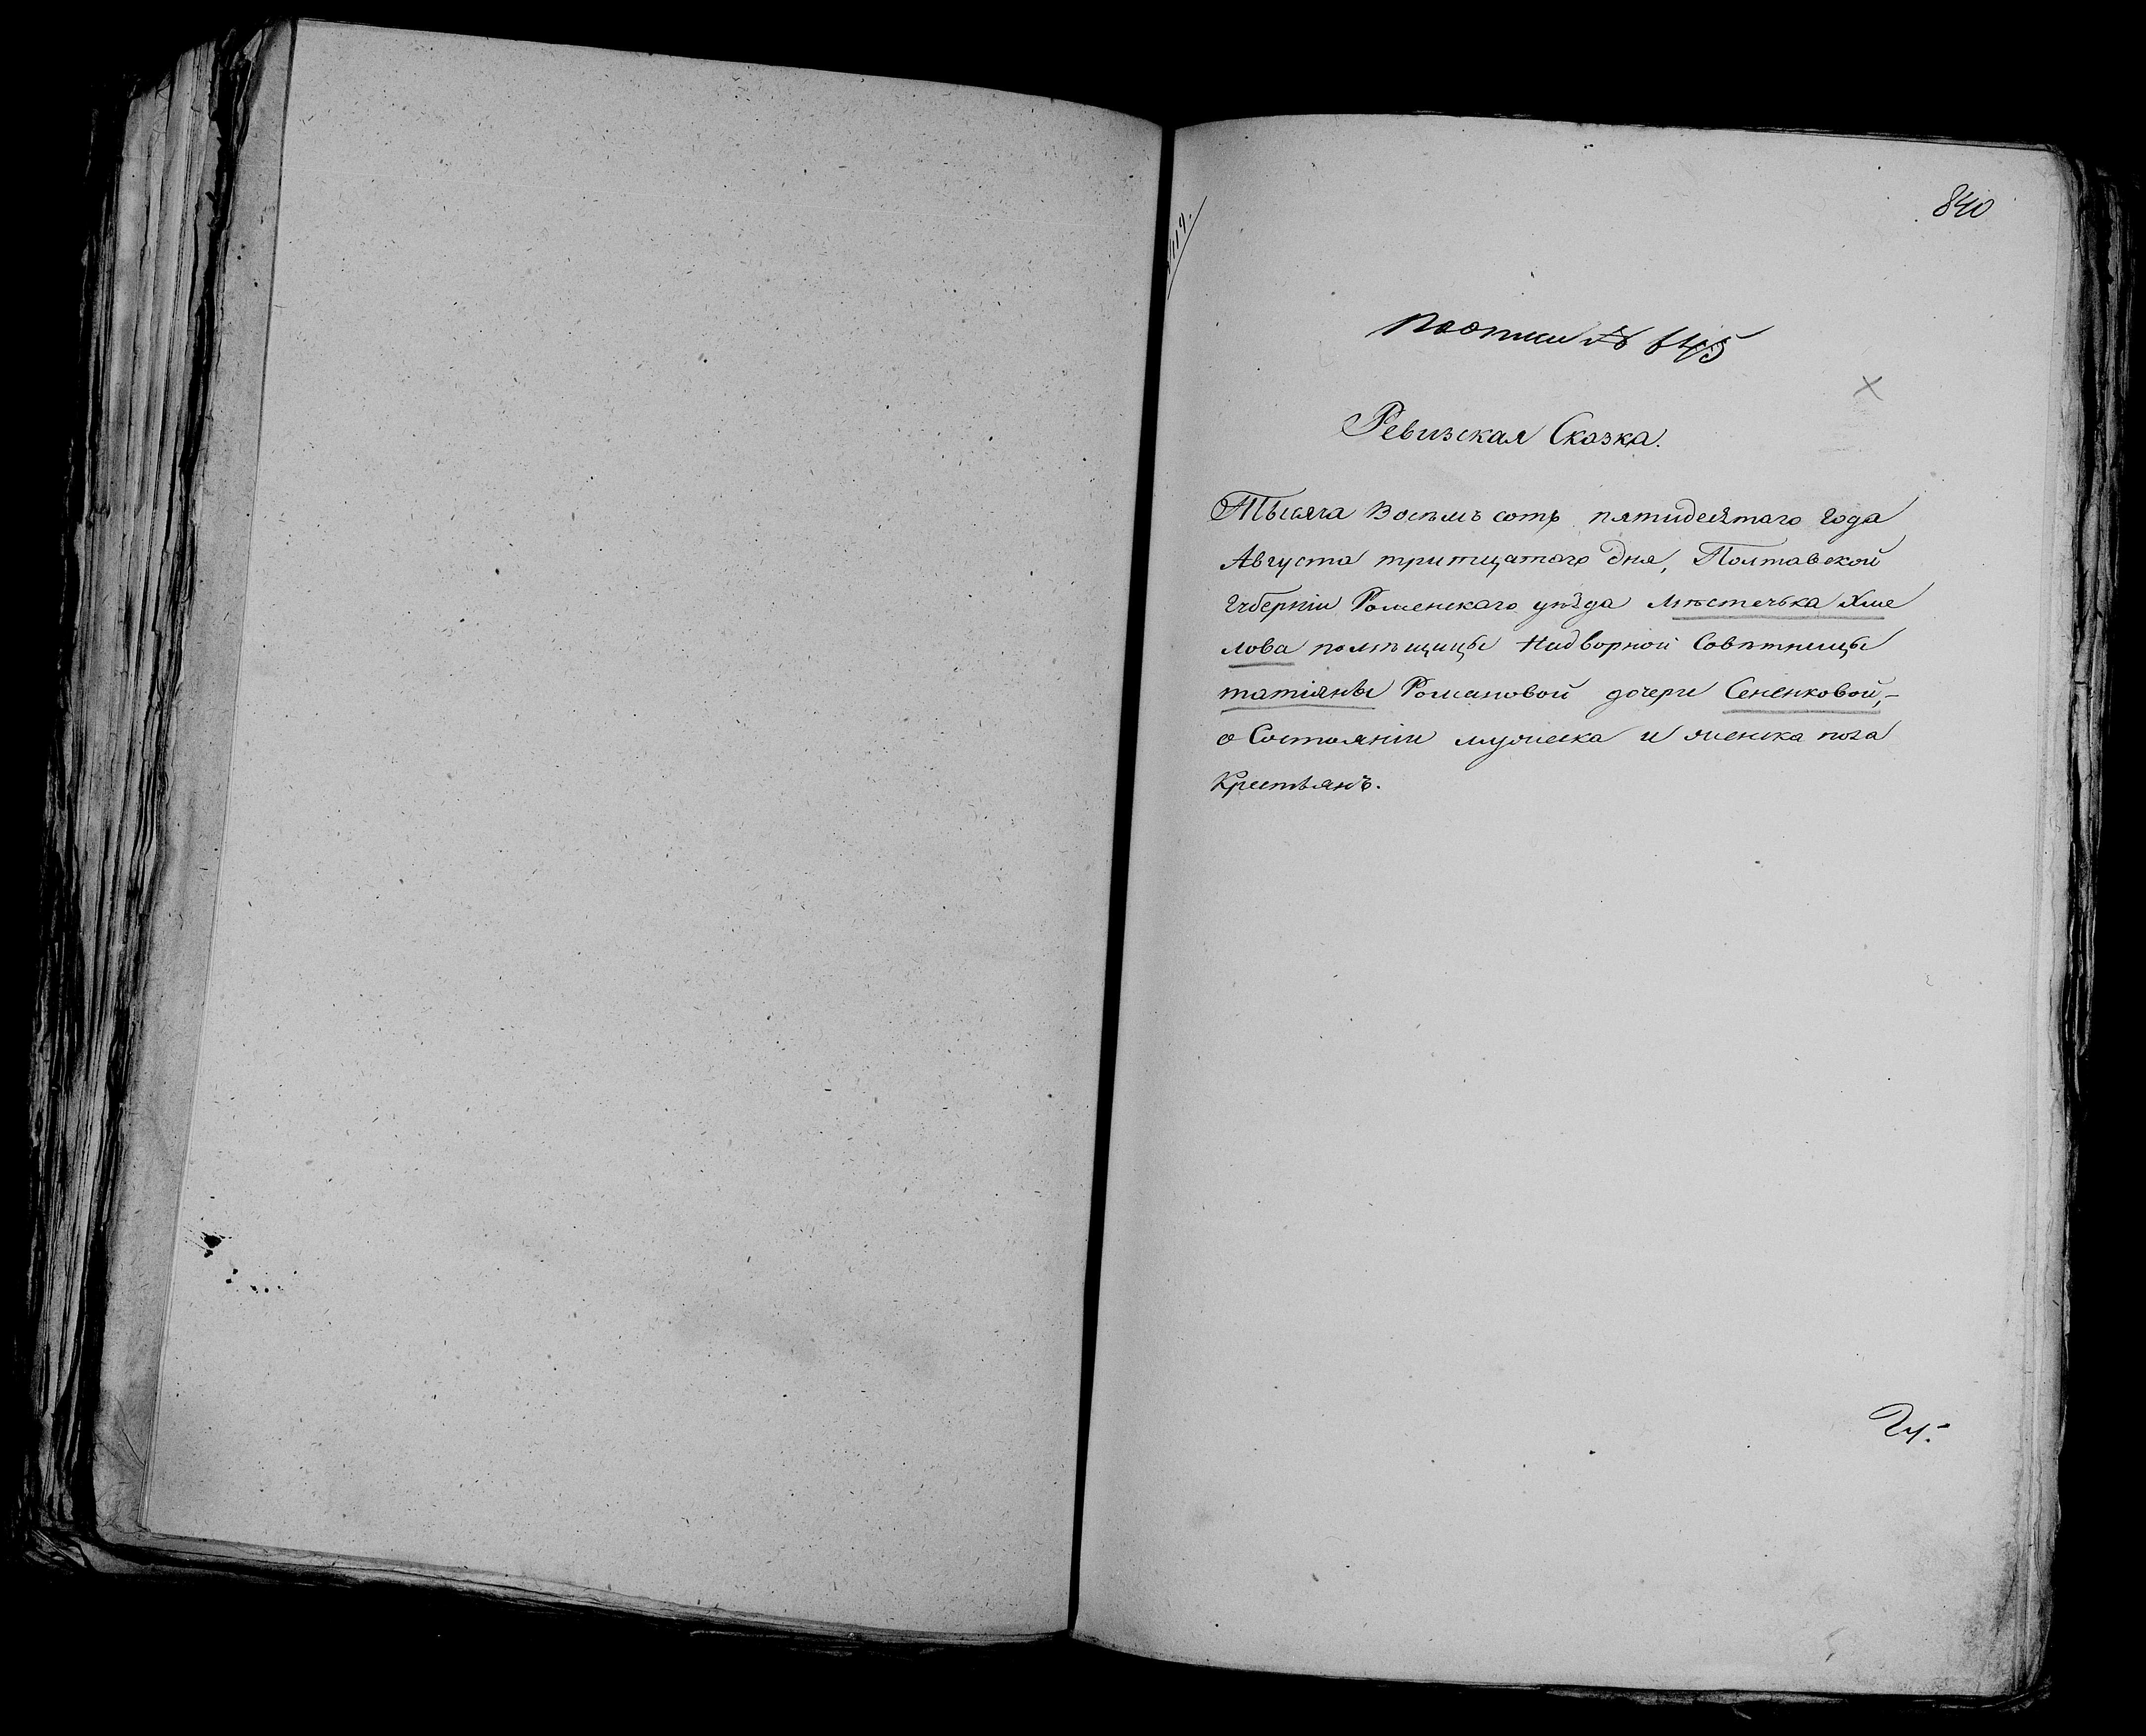 840
по описи № 645
Ревизская Сказка.
Тысяча Восемь сотъ пятидесятаго года
Августа тритцатого дня, Полтавской
Губерніи Роменскаго уѣзда Мѣстечька Хме
лова помѣщицы Надворной Совѣтницы
татіяны Романовой дочери Сененковой,-
о Состояніи мужеска и женска пола
Крестьянъ.